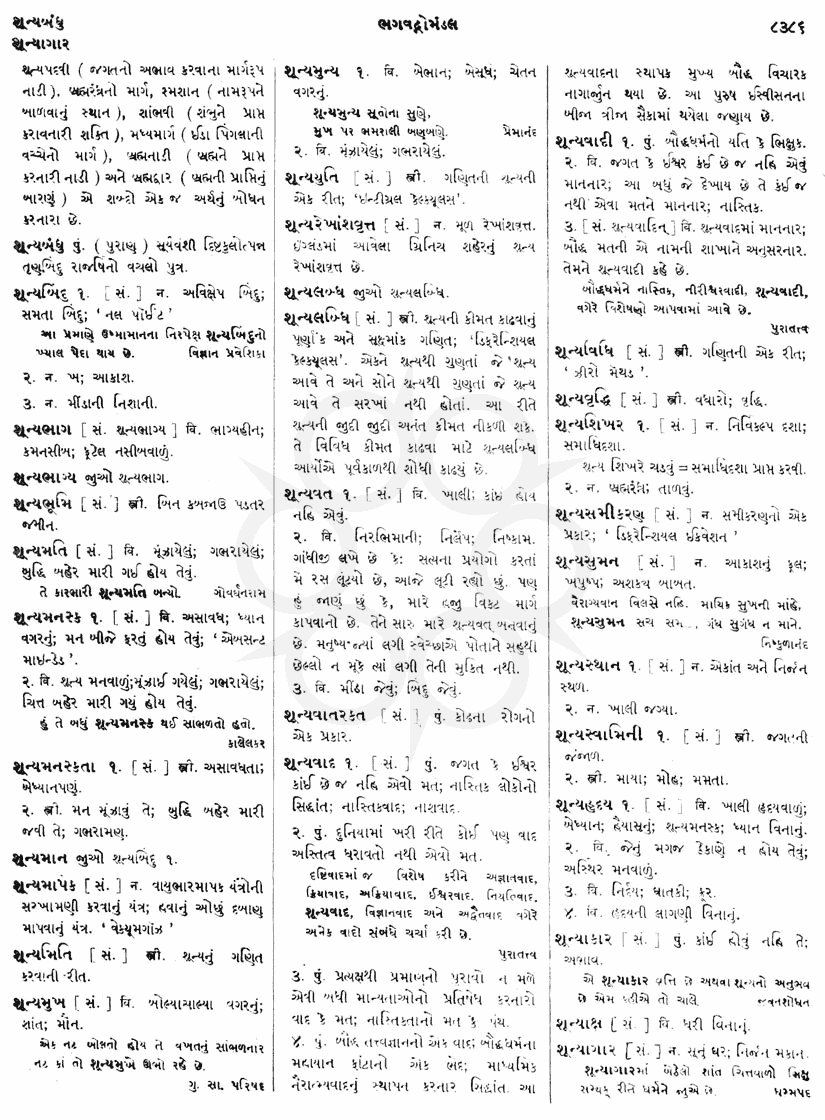 શૂન્યબંધુ
ભગવદ્ગોમંડલ
૮૩૮૬
શૂન્યાગાર
શૂન્યપદવી ( જગતનો અભાવ કરવાના માર્ગરૂપ
નાડી ), બ્રહ્મરંધ્રનો માર્ગ, સ્મશાન ( નામરૂપને
બાળવાનું સ્થાન ), શાંભવી ( શંભુને પ્રાપ્ત
કરાવનારી શક્તિ ), મધ્યમાર્ગ ( ઈડા પિંગલાની
વચ્ચેનો માર્ગ ), બ્રહ્મનાડી ( બ્રહ્મને પ્રાપ્ત
કરનારી નાડી ) અને બ્રહ્મદ્વાર ( બ્રહ્મની પ્રાપ્તિનું
બારણું ) એ શબ્દો એક જ અર્થનું બોધન
કરનારા છે.
શૂન્યબંધુ પું. ( પુરાણ ) સૂર્યવંશી દિષ્ટકુલોત્પન્ન
તૃણબિંદુ રાજર્ષિનો વચલો પુત્ર.
શૂન્યબિંદુ ૧. [ સં. ] ન. અવિક્ષેપ બિંદુ;
સમતા બિંદુ; ‘ નલ પૉઈંટ ’
આ પ્રમાણે ઉષ્મામાનના નિરપેક્ષ શૂન્યબિંદુનો
ખ્યાલ પેદા થાય છે. વિજ્ઞાન પ્રવેશિકા
૨. ન. ખ; આકાશ.
૩. ન. મીંડાની નિશાની.
શૂન્યભાગ [ સં. શૂન્યભાગ્ય ] વિ. ભાગ્યહીન;
કમનસીબ; ફૂટેલ નસીબવાળું.
શૂન્યભાગ્ય જુઓ શૂન્યભાગ.
શૂન્યભૂમિ [ સં. ] સ્ત્રી. બિન કબજાઉ પડતર
જમીન.
શૂન્યમતિ [ સં. ] વિ. મૂંઝાયેલું; ગભરાયેલું;
બુદ્ધિ બહેર મારી ગઈ હોય તેવું.
તે કારભારી શૂન્યમતિ બન્યો. ગોવર્ધનરામ
શૂન્યમનસ્ક ૧. [ સં. ] વિ. અસાવધ; ધ્યાન
વગરનું; મન બીજે ફરતું હોય તેવું; ‘ ઍબસન્ટ
માઇન્ડેડ ’.
૨. વિ. શૂન્ય મનવાળું; મૂંઝાઈ ગયેલું; ગભરાયેલું;
ચિત્ત બહેર મારી ગયું હોય તેવું.
હું તે બધું શૂન્યમનસ્ક થઈ સાંભળતો હતો.
કાલેલકર
શૂન્યમનસ્કતા ૧. [ સં. ] સ્ત્રી. અસાવધતા;
બેધ્યાનપણું.
૨. સ્ત્રી. મન મૂંઝાવું તે; બુદ્ધિ બહેર મારી
જવી તે; ગભરામણ.
શૂન્યમાન જુઓ શૂન્યબિંદુ ૧.
શૂન્યમાપક [ સં. ] ન. વાયુભારમાપક યંત્રોની
સરખામણી કરવાનું યંત્ર; હવાનું ઓછું દબાણ
માપવાનું યંત્ર. ‘ વેક્યૂમગૉજ ’
શૂન્યમિતિ [ સં. ] સ્ત્રી. શૂન્યનું ગણિત
કરવાની રીત.
શૂન્યમુખ [ સં. ] વિ. બોલ્યાચાલ્યા વગરનું;
શાંત; મૌન.
એક નટ બોલતો હોય તે વખતનું સાંભળનાર
નટ કાં તો શૂન્યમુખે ઊભો રહે છે.
ગુ. સા. પરિષદ
શૂન્યમુન્ય ૧. વિ. બેભાન; બેસૂધ; ચેતન
વગરનું.
શૂન્યમુન્ય સૂતોના સુણે,
મુખ પર ભમરાલી બણબણે. પ્રેમાનંદ
૨. વિ. મૂંઝાયેલું; ગભરાયેલું.
શૂન્યયુતિ [ સં. ] સ્ત્રી. ગણિતની શૂન્યની
એક રીત; ‘ઇન્ટીગ્રલ કેલ્ક્યુલસ’.
શૂન્યરેખાંશવૃત્ત [ સં. ] ન. મૂળ રેખાંશવૃત્ત.
ઇંગ્લંડમાં આવેલા ગ્રિનિચ શહેરનું શૂન્ય
રેખાંશવૃત્ત છે.
શૂન્યલબ્ધ જુઓ શૂન્યલબ્ધિ.
શૂન્યલબ્ધિ [ સં. ] સ્ત્રી. શૂન્યની કીમત કાઢવાનું
પૂર્ણાંક અને સૂક્ષ્માંક ગણિત; ‘ડિફરેન્શિયલ
કેલ્ક્યૂલસ’. એકને શૂન્યથી ગુણતાં જે શૂન્ય
આવે તે અને સોને શૂન્યથી ગુણતાં જે શૂન્ય
આવે તે સરખાં નથી હોતાં. આ રીતે
શૂન્યની જુદી જુદી અનંત કીમત નીકળી શકે.
તે વિવિધ કીમત કાઢવા માટે શૂન્યલબ્ધિ
આર્યોએ પૂર્વકાળથી શોધી કાઢ્યું છે.
શૂન્યવત ૧. [ સં. ] વિ. ખાલી; કાંઈ હોય
નહિ એવું.
૨. વિ. નિરભિમાની; નિર્લેપ; નિષ્કામ.
ગાંધીજી લખે છે કેઃ સત્યના પ્રયોગો કરતાં
મેં રસ લૂંટ્યો છે, આજે લૂટી રહ્યો છું. પણ
હું જાણું છું કે, મારે હજી વિકટ માર્ગ
કાપવાનો છે. તેને સારુ મારે શૂન્યવત્ બનવાનું
છે. મનુષ્ય જ્યાં લગી સ્વેચ્છાએ પોતાને સહુથી
છેલ્લો ન મૂકે ત્યાં લગી તેની મુક્તિ નથી.
૩. વિ. મીંડા જેવું; બિંદુ જેવું.
શૂન્યવાતરક્ત [ સં. ] પું. કોઢના રોગનો
એક પ્રકાર.
શૂન્યવાદ ૧. [ સં. ] પું. જગત કે ઈશ્વર
કાંઈ છે જ નહિ એવો મત; નાસ્તિક લોકોનો
સિદ્ધાંત; નાસ્તિકવાદ; નાશવાદ.
૨. પું. દુનિયામાં ખરી રીતે કોઈ પણ વાદ
અસ્તિત્વ ધરાવતો નથી એવો મત.
દષ્ટિવાદમાં જ વિશેષ કરીને અજ્ઞાતવાદ,
ક્રિયાવાદ, અક્રિયાવાદ, ઈશ્વરવાદ, નિયતિવાદ,
શૂન્યવાદ, વિજ્ઞાનવાદ અને અદ્વૈતવાદ વગેરે
અનેક વાદો સંબંધે ચર્ચા કરી છે.
પુરાતત્ત્વ
૩. પું. પ્રત્યક્ષથી પ્રમાણનો પુરાવો ન મળે
એવી બધી માન્યતાઓનો પ્રતિષેધ કરનારો
વાદ કે મત; નાસ્તિકતાનો મત કે પંથ.
૪. પું. બૌદ્ધ તત્ત્વજ્ઞાનનો એક વાદ; બૌદ્ધધર્મના
મહાયાન ફાંટાનો એક ભેદ; માધ્યમિક
નૈરાત્મ્યવાદનું સ્થાપન કરનાર સિદ્ધાંત. આ
શૂન્યવાદના સ્થાપક મુખ્ય બૌદ્ધ વિચારક
નાગાર્જુન થયા છે. આ પુરુષ ઈસ્વીસનના
બીજા ત્રીજા સૈકામાં થયેલા જણાય છે.
શૂન્યવાદી ૧. પું. બૌદ્ધધર્મનો યતિ કે ભિક્ષુક.
૨. વિ. જગત કે ઈશ્વર કંઈ છે જ નહિ એવું
માનનાર; આ બધું જે દેખાય છે તે કંઈ જ
નથી એવા મતને માનનાર; નાસ્તિક.
૩. [ સં. શૂન્યવાદિન્ ] વિ. શૂન્યવાદમાં માનનાર;
બૌદ્ધ મતની એ નામની શાખાને અનુસરનાર.
તેમને શૂન્યવાદી કહે છે.
બૌધ્ધધર્મને નાસ્તિક, નીરીશ્વરવાદી, શૂન્યવાદી,
વગેરે વિશેષણો આપવામાં આવે છે.
પુરાતત્ત્વ
શૂન્યવિધિ [ સં. ] સ્ત્રી. ગણિતની એક રીત;
‘ ઝીરો મેથડ ’.
શૂન્યવૃદ્ધિ [ સં. ] સ્ત્રી. વધારો; વૃદ્ધિ.
શૂન્યશિખર ૧. [ સં. ] ન. નિર્વિકલ્પ દશા;
સમાધિદશા.
શૂન્ય શિખરે ચડવું = સમાધિદશા પ્રાપ્ત કરવી.
૨. ન. બ્રહ્મરંધ્ર; તાળવું.
શૂન્યસમીકરણ [ સં. ] ન. સમીકરણનો એક
પ્રકાર; ‘ ડિફરેન્શિયલ ઇક્વેશન ’
શૂન્યસુમન [ સં. ] ન. આકાશનું ફૂલ;
ખપુષ્પ; અશક્ય બાબત.
વૈરાગ્યવાન વિલસે નહિ. માયિક સુખની માંહે,
શૂન્યસુમન સચ સમ , ગંધ સુગંધ ન માને.
નિષ્કુળાનંદ
શૂન્યસ્થાન ૧. [ સં. ] ન. એકાંત અને નિર્જન
સ્થળ.
૨. ન. ખાલી જગ્યા.
શૂન્યસ્વામિની ૧. [ સં. ] સ્ત્રી. જગતની
જંજાળ.
૨. સ્ત્રી. માયા; મોહ; મમતા.
શૂન્યહૃદય ૧. [ સં. ] વિ. ખાલી હૃદયવાળું;
બેધ્યાન; હૈયાસૂનું; શૂન્યમનસ્ક; ધ્યાન વિનાનું.
૨. વિ. જેનું મગજ ઠેકાણે ન હોય તેવું;
અસ્થિર મનવાળું.
૩. વિ. નિર્દય; ઘાતકી; ક્રૂર.
૪. વિ. હૃદયની લાગણી વિનાનું.
શૂન્યાકાર [ સં. ] પું. કાંઈ હોવું નહિ તે;
અભાવ.
એ શૂન્યાકાર વૃત્તિ છે અથવા શૂન્યનો અનુભવ
છે એમ કહીએ તો ચાલે. જીવનશોધન
શૂન્યાક્ષ [ સં. ] વિ. ધરી વિનાનું.
શૂન્યાગાર [ સં. ] ન. સૂનું ઘર; નિર્જન મકાન.
શૂન્યાગારમાં બેઠેલો શાંત ચિત્તવાળો ભિક્ષુ
સમ્યક્ રીતે ધર્મને જુએ છે. ધમ્મપદ